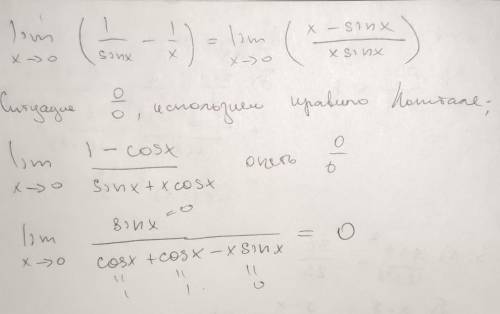 lim x→0 (1/sinx − 1/x) = lim x→0 ((x − sinx)/(x sinx))
Ситуация 0/0, используем правило Лопиталя;
lim x→0 (1 − cosx)/(sinx + x cosx) опять 0/0
lim x→0 (sinx =0)/(cosx + cosx − x sinx) = 0
" " "
1 1 0